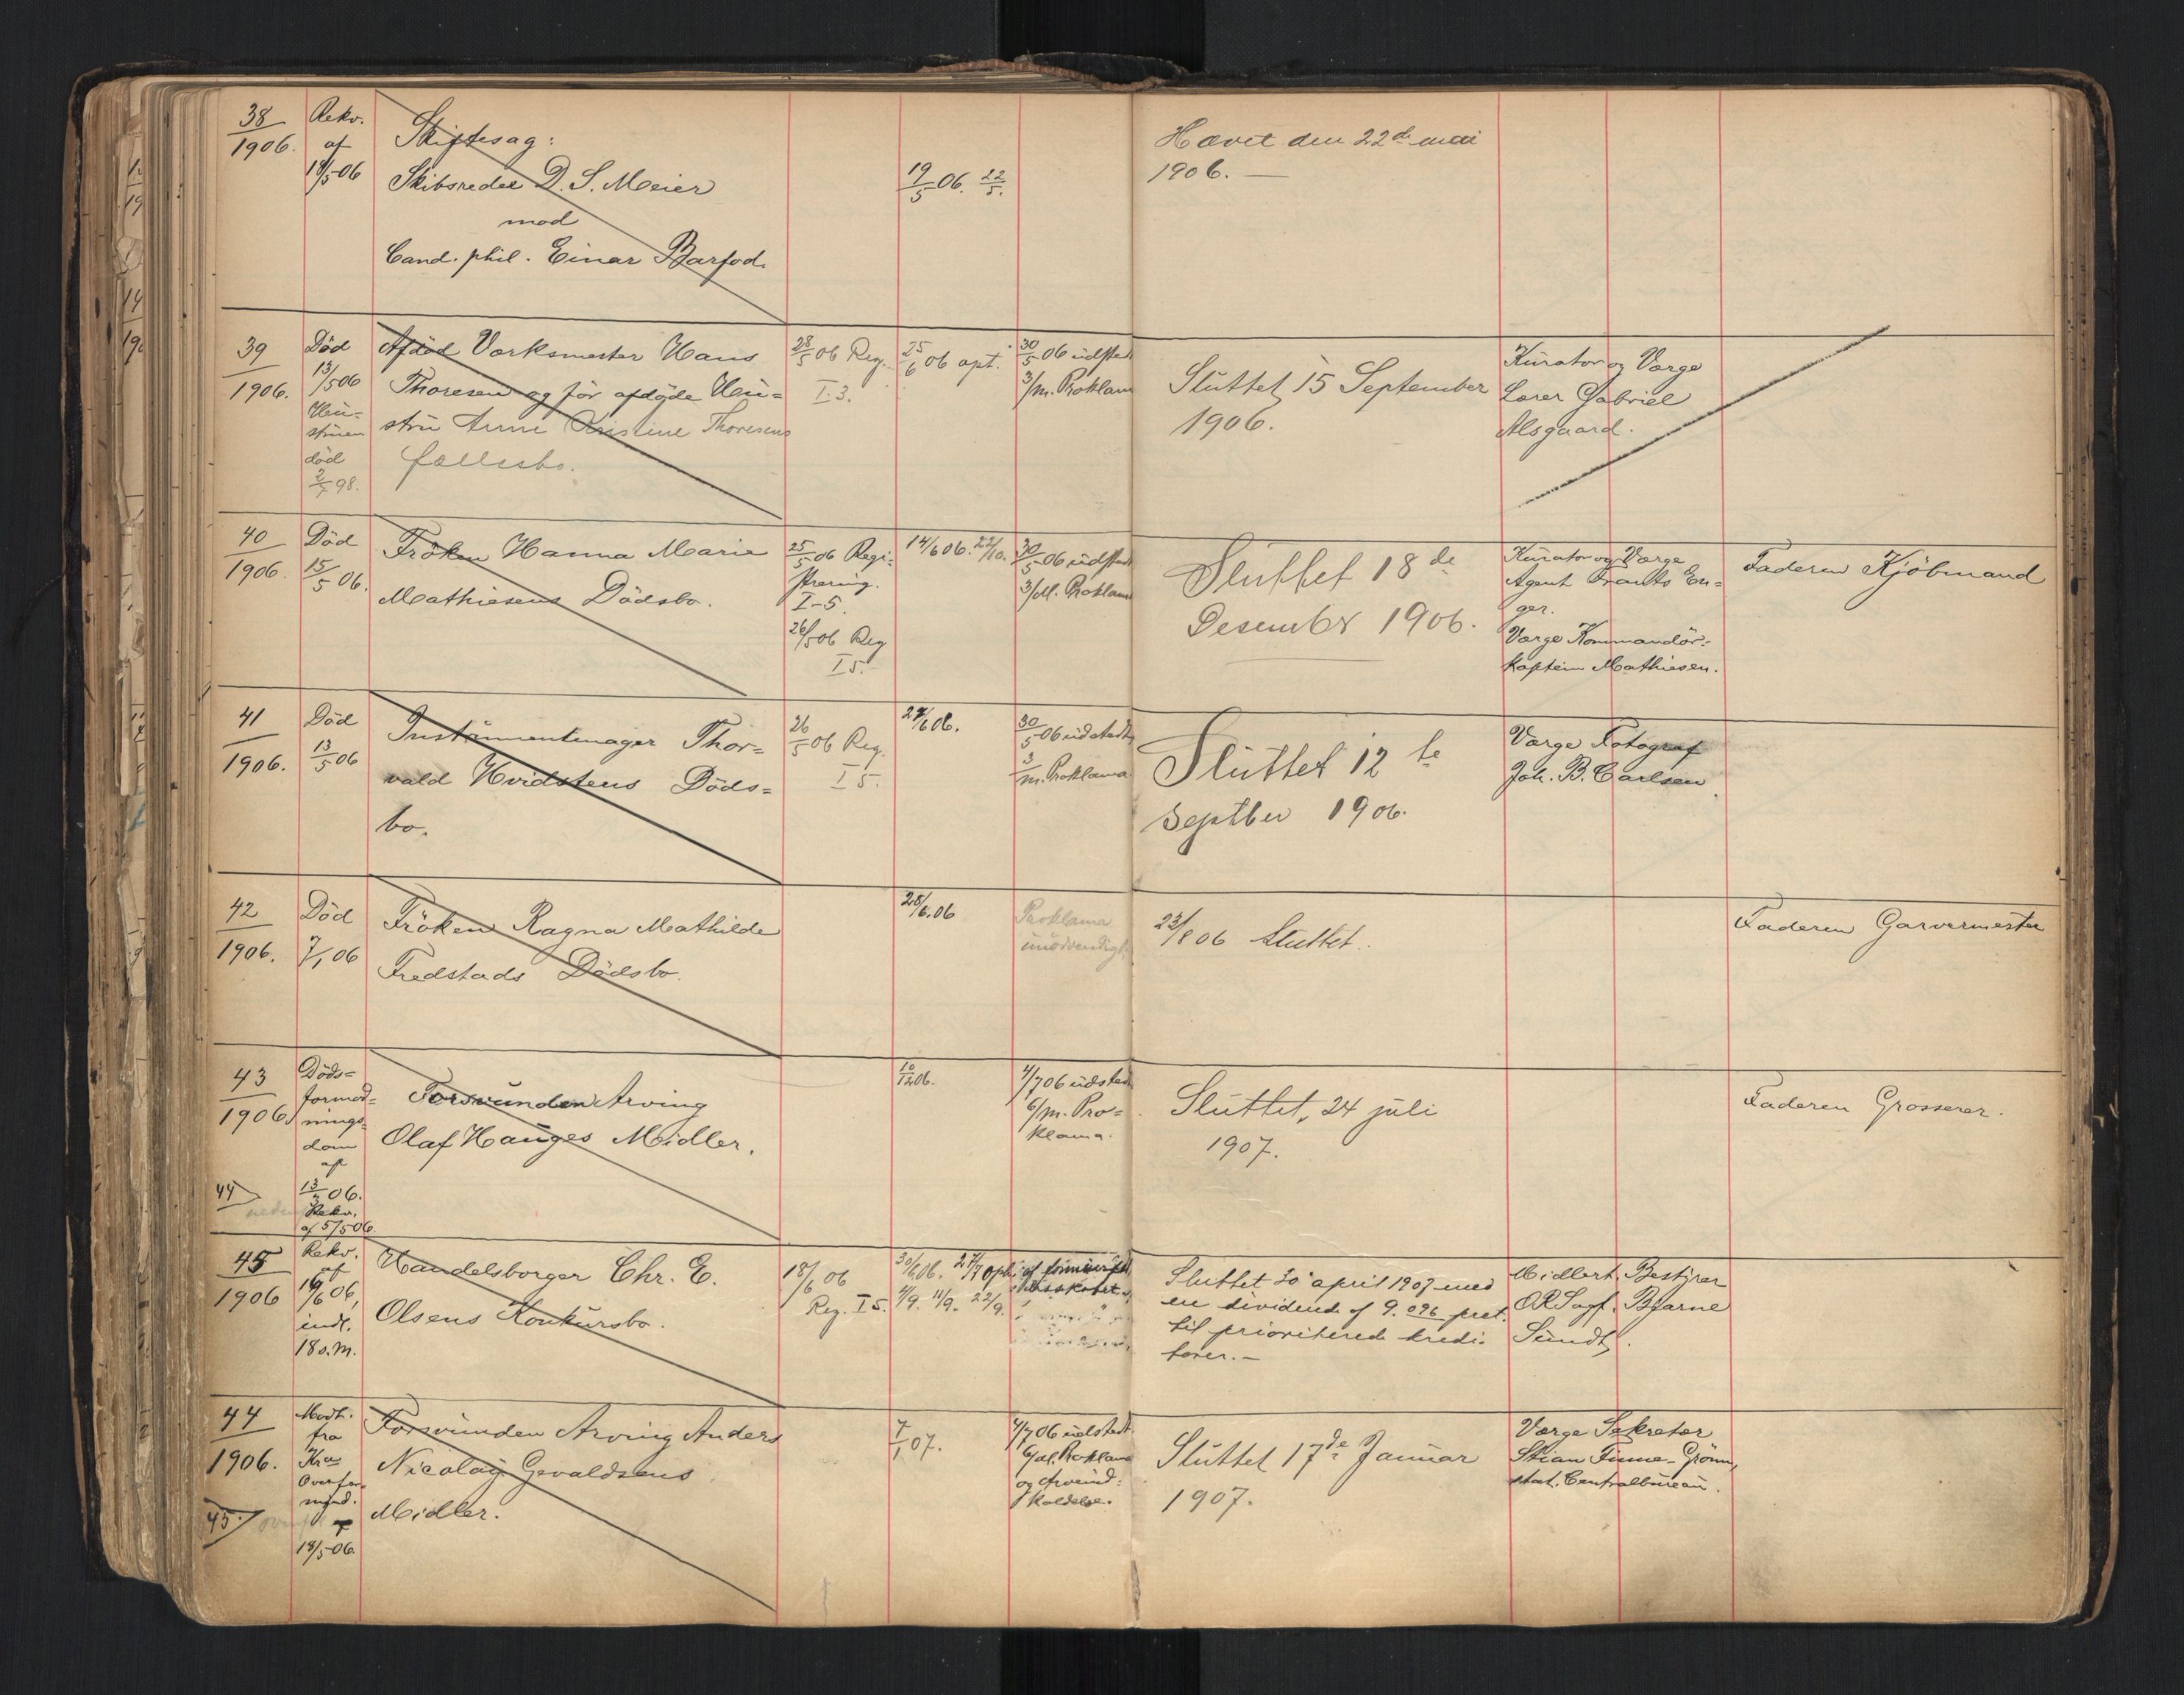 38
1906.
Rekv.
af
18/5 06
Skiftesag:
Skibsreder D. S. Meier
mod
Cand. phil. Einar Barfod.
19/5 06. 22/5.
Hævet den 22de mai
1906. —
39
1906.
Död
13/5 06
Hustruen
död
98.
Afdöd Værksmester Hans
Thoresen og för afdöde Hu=
stru Anne Kristine Thoresens
fællesbo.
28/5 06 Reg.
I. 3.
25/6 06 apt.
30/5 06 udsted
3/m. Proklam
Sluttet 15 September
1906.
Kurator og Værge
Lærer Gabriel
Alsgaard.
40
1906.
Död
15/5 06.
Fröken Hanna Marie
Mathiesens Dödsbo.
25/5 06 Regi-
strering.
I-5.
26/5 06 Reg
I 5.
14/6 06. 22/10.
30/5 06 udsted
3/M. Proklam
Sluttet 18de
Desember 1906.
Kurator og Værge
Agent
ger.
Værge Kommandör-
kaptein Mathiesen.
Faderen Kjöbmand
41
1906.
Död
13/5 06
Instrumentmager Thor=
vald Hvidstens Döds=
bo.
26/5 06 Reg.
I 5.
27/6 06.
30/5 06 udstedt
3/m. Proklama
Sluttet 12te
Septbr 1906.
Værge Fotograf
Joh. B. Carlsen
42
1906.
Död
7/1 06
Fröken Ragna Mathilde
Fredstads Dödsbo.
28/6.06
Proklama
unödvendigt
22/8 06 Sluttet.
Faderen Garvermester
43
1906
Döds=
formod=
nings-
dom
af
13/2 06.
Rekv.
af 5/5 06.
Forsvunden Arving
Olaf Hauges Midler.
10/12 06.
4/7 06 udsted
6/m. Pro=
klama.
Sluttet, 24 juli
1907.
Faderen Grosserer.
44
45
1906
Rekv.
af
16/6 06,
indl.
18 s.M.
Handelsborger Chr. E.
Olsens Konkursbo.
18/6 06
Reg. I 5.
30/6 06.
4/9. 11/9. 22/9.
Sluttet 20 april 1907 med
en dividende af 9.096 pret.
til prioriterede kredi-
torer. —
Midlert. Bestyrer
O.R.Sagf. Bjarne
Sundt.
44
1906.
Modt.
fra
Kra
Overfor-
mynd.
18/5 06
Forsvunden Arving Anders
Nicolay Gevaldsens
Midler.
7/1 07.
4/7 06 udstedt
Gal. Proklama
og Arveind-
kaldelse.
Sluttet 17de Januar
1907.
Værge Sekretær
Stian Finne-Grönn,
stat. Centralbureau.
45